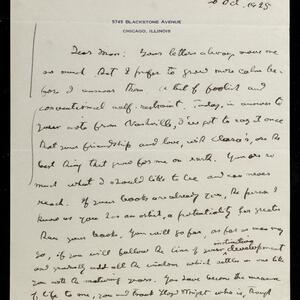 20 Oct. 1925
5745 BLACKSTONE AVENUE
CHICAGO, ILLINOIS
Dear Man: Your letters always move me
so much that I prefer to grow more calm be-
fore I answer them: a bit of foolish and
conventional self-restraint. Today, in answer to
your note from Nashville, I've got to say at once
that your friendship and love, with Clara's, are the
best thing that grow for me on earth. You are so
much what I should like to be and can never
reach. If your books are already fine, the person I
know as you is an artist, a potentiality far greater
than your books. You will go far, as far as man may
go, if you will follow the line of your instinctive development
and gradually add all the wisdom which settles on one like
you with the maturing years. You have been the
life to me, you and Frank Lloyd Wright who is,